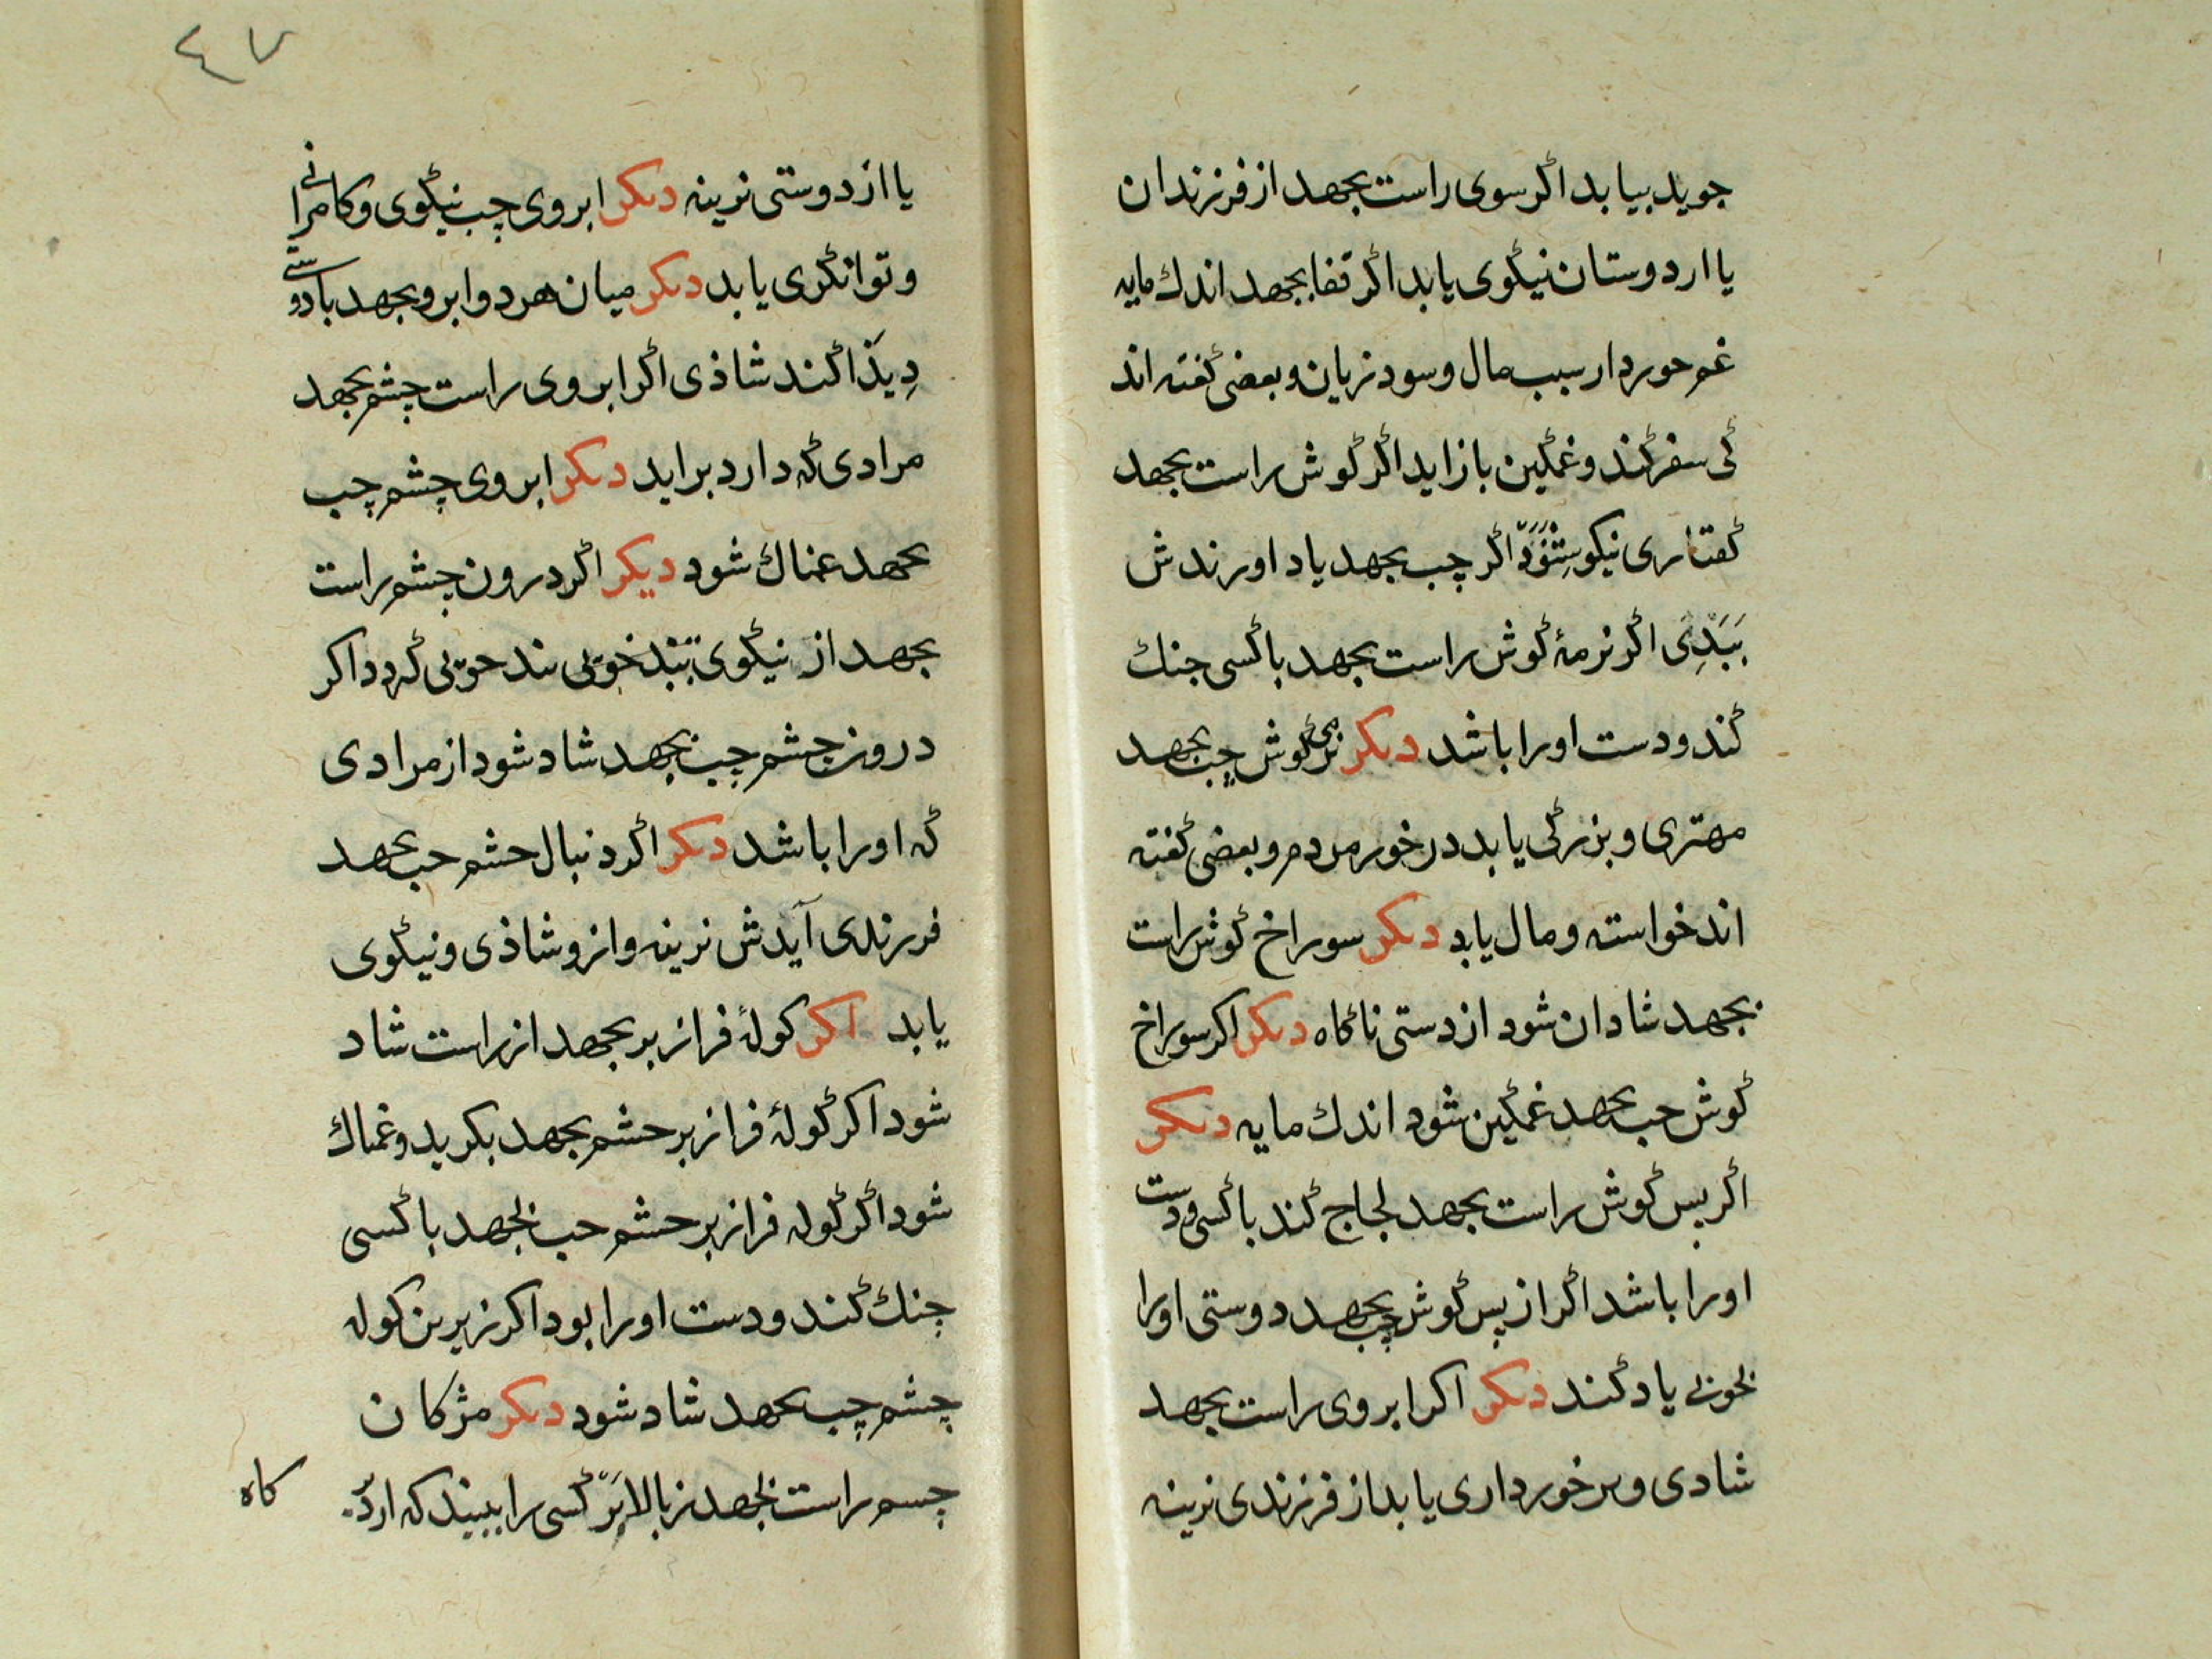 جوید بیابد اگر سوی راست بجهد از فرزندان
یا ار دوستان نیگوی یابد اگر قفا بجهد اندك مایه
غم حورد ار سبب مال و سود زیان و بعضی گفته اند
کی سفر کند و غمگین باز اید اگر گوش راست بجهد
گفتاری نیکو شنود اگر چب بجهد یاد اورندش
ببدی اگر نرمۀ گوش راست بجهد با کسی جنك
کند و دست اورا باشد دیکر نرمی گوش چب بجهد
مهتری و بزرگی یابد در خور مردم و بعضی گفته
اند خواسته و مال یابد دیکر سوراخ گوش راست
بجهد شادان شود از دستی ناگاه دیکر اکر سوراخ
گوش حب بجهد غمگین شود اندك مایه دیکر
اگر بس گوش راست بجهد لجاج کند با کسی و دست
اورا باشد اگر از پس گوش چب بجهد دوستی اورا
بخوبی یاد کند دیکر اکر ابروی راست بجهد
شادی و برخورداری یابد از فرزندی نرینه
٤٧
یا از دوستی نرینه دیکر ابروی چب نیگوی و کامرانی
و توانگری یابد دیکر میان هر دو ابرو بجهد با دوستی
دیذا کند شاذی اگر ابروی راست چشم بجهد
مرادی که دارد براید دیکر ابروی چشم چب
بجهد غمناك شود دیکر اگر درون چشم راست
بجهد از نیگوی بیند خوبی بیند حوبی که دد اکر
درون چشم چب بجهد شاد شود از مرادی
که اورا باشد دیکر اگر دنبال حشم حب بجهد
فرزندی آیدش نرینه و ازو شاذی و نیگوی
یابد اکر کولۀ فراز بر بجهد از راست شاد
شود اکر گولۀ فراز بر حشم بجهد بکرید و غمناك
شود اگر گوله فراز بر حشم حب بجهد با کسی
جنك کند و دست اورا بود اکر زیرین کوله
چشم چب بجهد شاد شود دیکر مژکان
چسم راست بجهد ز بالابر کسی را ببیند که از
کاه